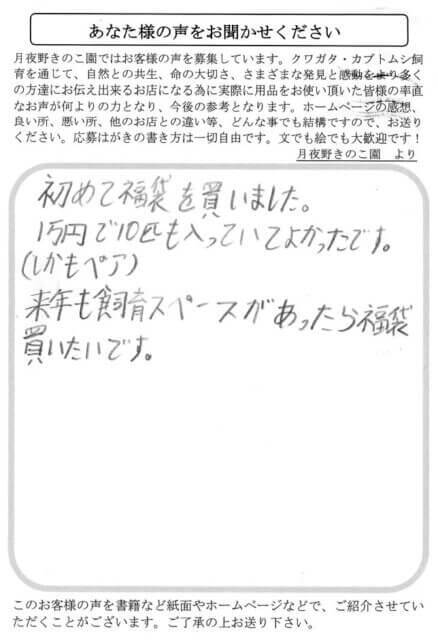 あなた様の声をお聞かせください
月夜野きのこ園ではお客様の声を募集しています。クワガタ・カブトムシ飼
育を通じて、自然との共生、命の大切さ、さまざまな発見と感動をより多く
の方達にお伝え出来るお店になる為に実際に用品をお使い頂いた皆様の率直
なお声が何よりの力となり、今後の参考となります。ホームページの感想、
良い所、悪い所、他のお店との違い等、どんな事でも結構ですので、お送り
ください。応募はがきの書き方は一切自由です。文でも絵でも大歓迎です！
月夜野きのこ園 より
初めて福袋を買いました。
1万円で10匹も入っていてよかったです。
(しかもペア)
来年も飼育スペースがあったら福袋
買いたいです。
このお客様の声を書籍など紙面やホームページなどで、ご紹介させてい
ただくことがございます。ご了承の上お送り下さい。